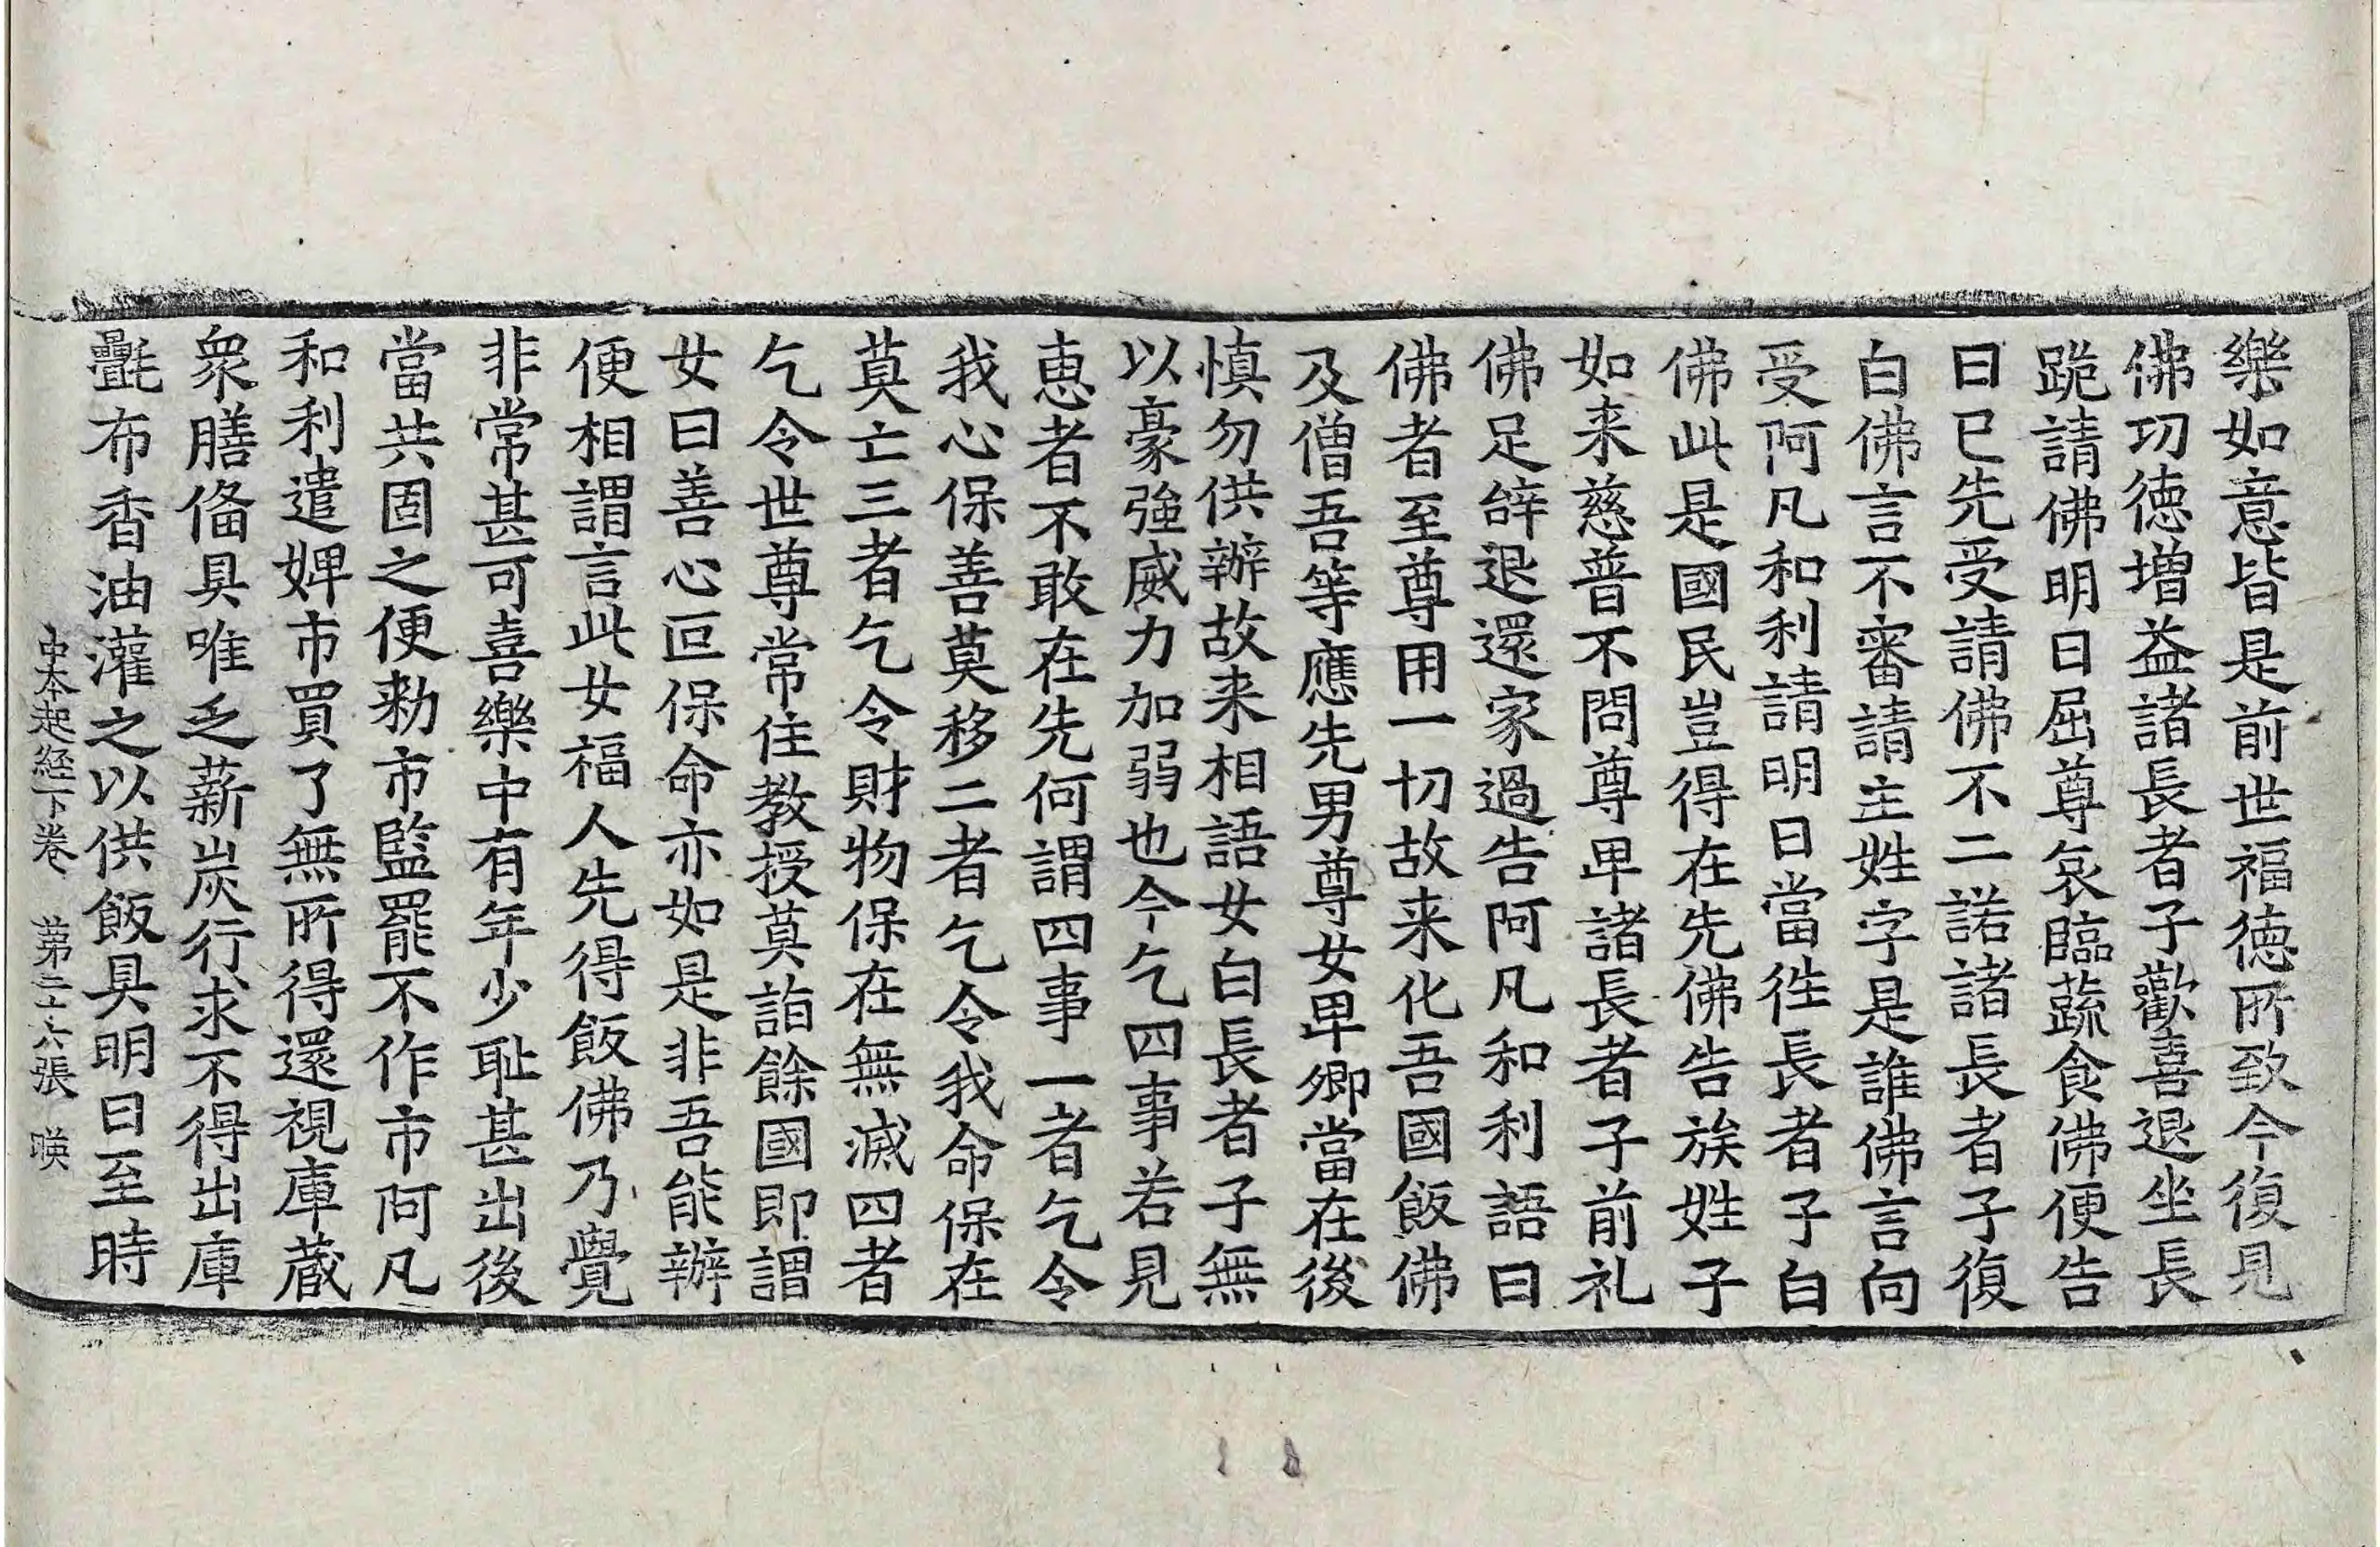 樂如意皆是前世福徳所致今復見
佛功徳增益諸長者子歡喜退坐長
跪請佛明日屈尊哀臨蔬食佛便告
曰已先受請佛不二諾諸長者子復
白佛言不審請主姓字是誰佛言向
受阿凡和利請明日當徃長者子白
佛此是國民豈得在先佛告族姓子
如来慈普不問尊卑諸長者子前礼
佛足辝退還家過告阿凡和利語曰
佛者至尊用一切故来化吾國飯佛
及僧吾等應先男尊女卑卿當在後
慎勿供辦故来相語女白長者子無
以豪強威力加弱也今乞四事若見
恵者不敢在先何謂四事一者乞令
我心保善莫移二者乞令我命保在
莫亡三者乞令財物保在無滅四者
乞令世尊常住教授莫詣餘國即謂
女曰善心叵保命亦如是非吾能辦
便相謂言此女福人先得飯佛乃覺
非常甚可喜樂中有年少耻甚出後
當共固之便勑市監罷不作市阿凡
和利遣婢市買了無所得還視庫蔵
衆膳俻具唯乏薪炭行求不得出庫
㲲布香油灌之以供飯具明日至時
中本起經下卷　苐二十六張　暎